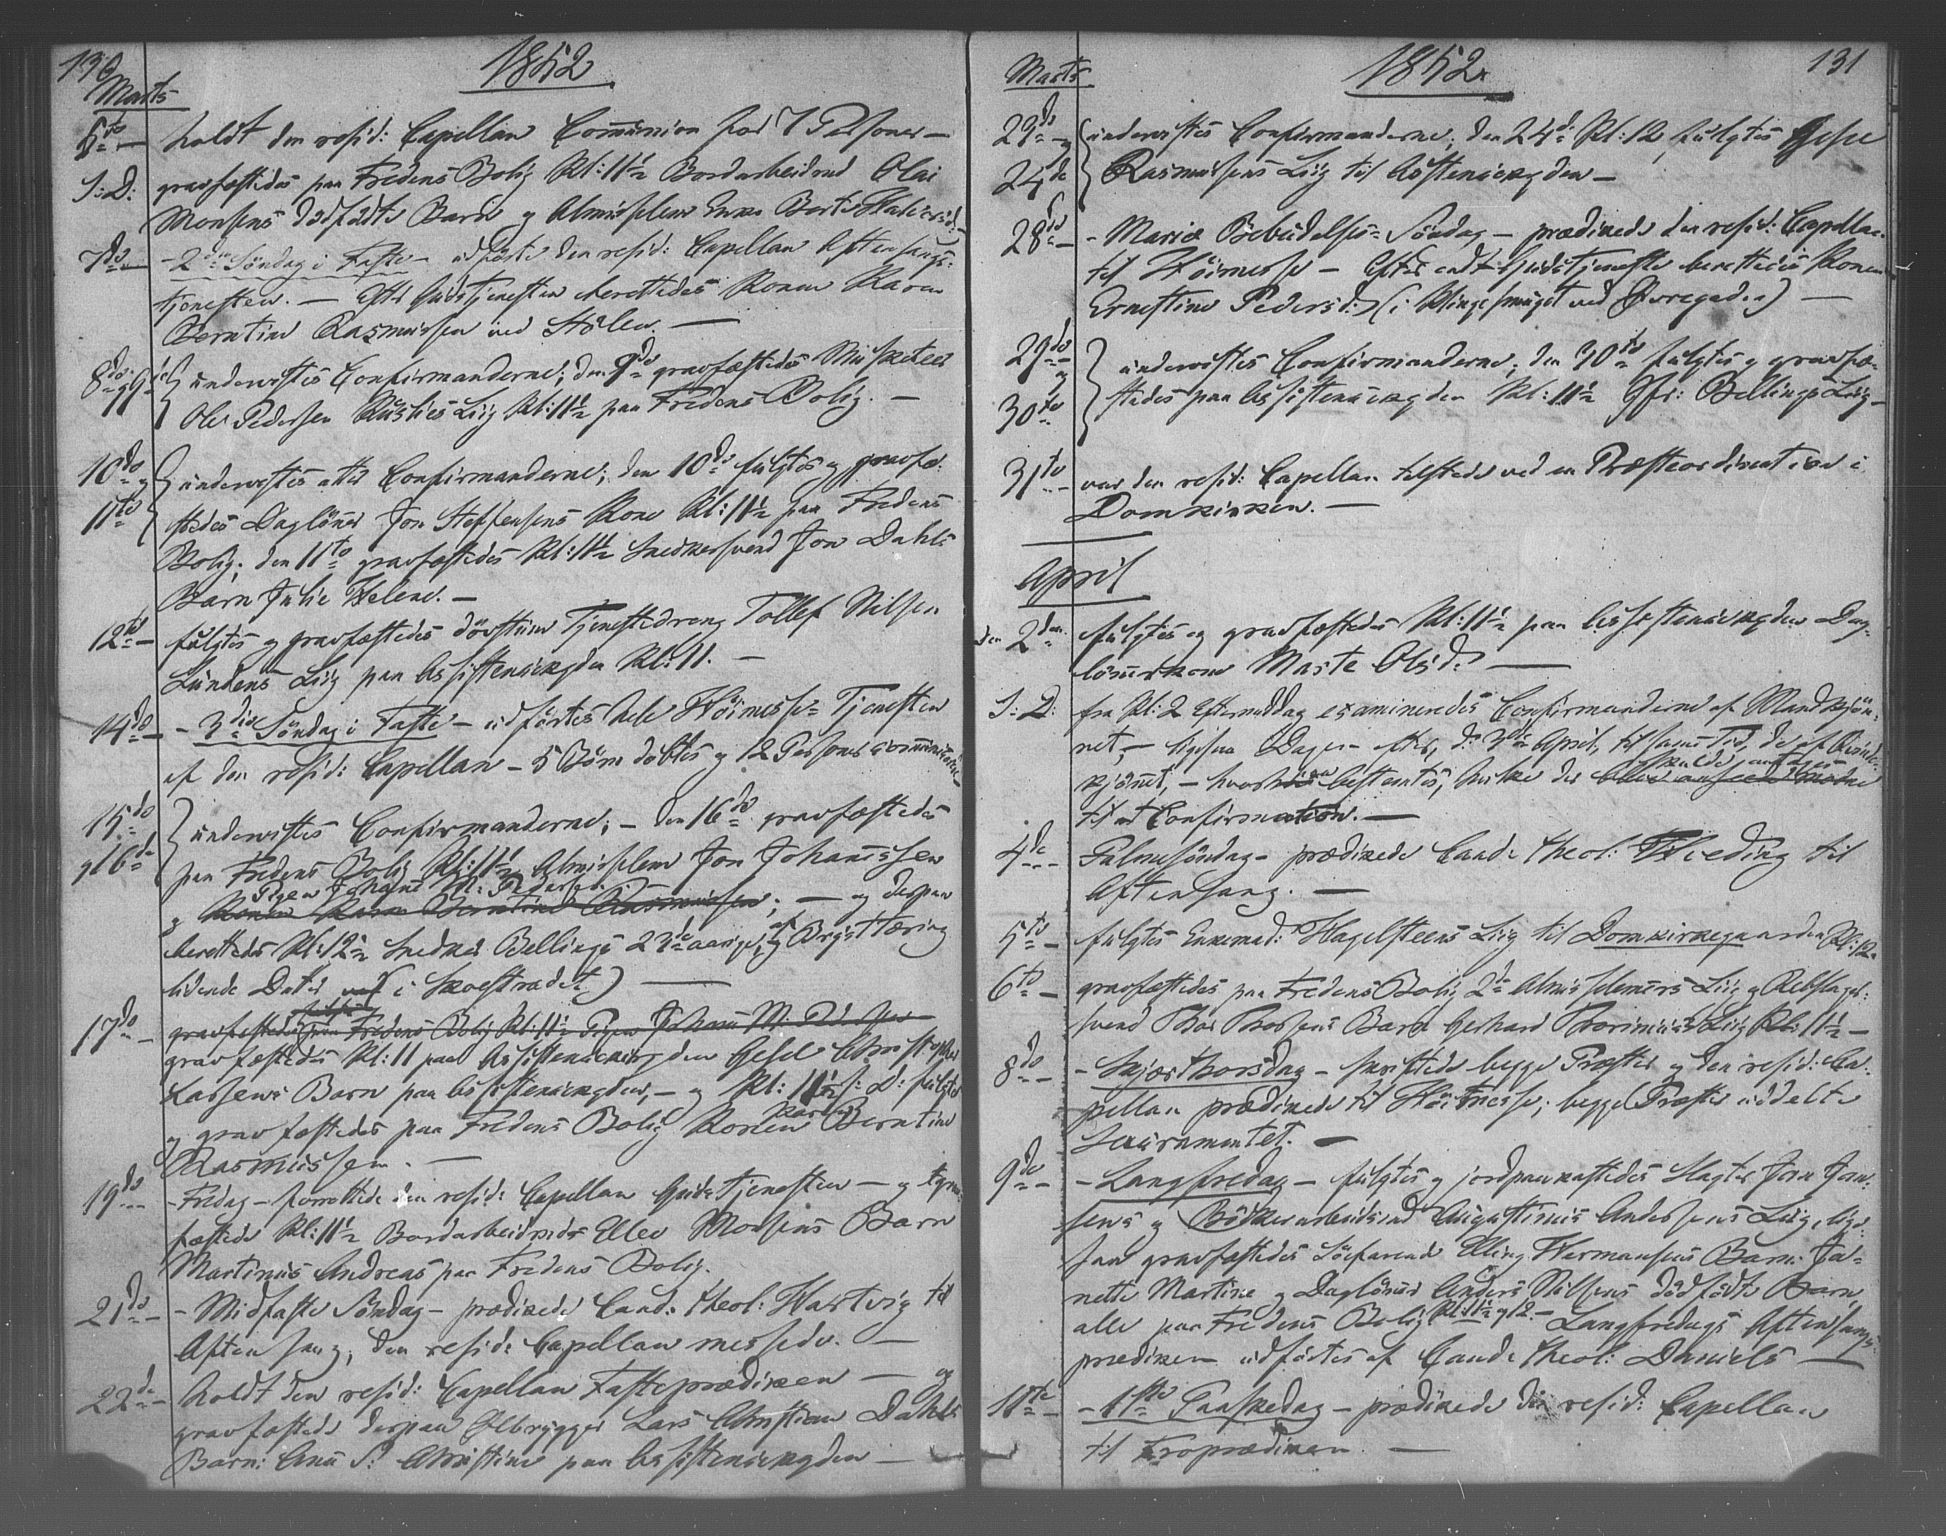 130
1852
Marts
6te holdt den resid: Capellan Communion for 7 Personer —
S: D: gravfæstedes paa Fredens Bolig Kl: 11½ Bordarbeider Olai
Monsens dødfødte Barn og Almisselem Enke
7de — 2den Søndag i Faste — udførte den resid: Capellan Aftensangs-
tjenesten. — Efter Gudstjenesten berettedes Konen Karen
Berntine Rasmussen ved Stølen. —
8de og 9de underviistes Confirmanderne; den 9de gravfæstedes Musketeer
Ole Pedersen Liig Kl: 11½ paa Fredens Bolig. —
10de og underviistes atter Confirmanderne; den 10de fulgtes og gravfæ-
11te stedes Daglönner Jon Steffensens Kone Kl: 11½ paa Fredens
Bolig; den 11te gravfæstedes Kl: 11½ Snedkersvend Jon Dahls
Barn Julie Helene. —
12te — fulgtes og gravfæstedes døvstum Tjenestedreng Tollef Nilsen
Lundens Liig paa Assistenskirkegden Kl: 11. —
14de — 3die Søndag i Faste — udførtes hele Höimesse-Tjenesten
af den resid: Capellan — 5 Børn døbtes og 12 Personer communicerede
15de underviistes Confirmanderne; — den 16de gravfæstedes
og 16de paa Fredens Bolig Kl: 11½ Almisselem Jon Johannessen
Pigen Johanne M. Pedersen
og Konen Karen Berntine Rasmussen; — og derpaa
berettedes Kl: 12½ Snedker Bellings 23de aarige, af Brystтæring
lidende Datter (i Skostrædet) —
17de — gravfæstedes paa Fredens Bolig Kl: 11½ Pigen Johanne M. Pedersen
gravfæstedes Kl: 11 paa Assistenskirkegden Gesel Christopher
Lassens Barn paa Assistenskirkegden, — og Kl: 11½ s: D: fulgtes
og gravfæstedes paa Fredens Bolig Konen Karen Berntine
Rasmussen. —
19de — Fredag — forrettede den resid: Capellan Gudstjenesten — og grav-
fæstede Kl: 11½ Bordarbeider Ellev Monsens Barn
Martinus Andreas paa Fredens Bolig.
21de — Midfaste Søndag — prædikede Cand: theol: Hartvig til
Aftensang, den resid: Capellan messede. —
22de — holdt den resid: Capellan Fasteprædiken — og
gravfæstede derpaa Ølbrygger Lars Christian Dahls
Barn: Anne S: Christine paa Assistenskirkegden —
Marts
1852.
131
23de og underviistes Confirmanderne; den 24de Kl: 12, fulgtes
24de Rasmussens Liig til Assistenskirkegden —
28de — Mariæ Bebudelses-Søndag — prædikede den resid: Capellan
til Höimesse — Efter endt Gudstjeneste berettedes Konen
Ernestine Pedersd: (i Klingesmuget ved Øvregaden) —
29de og underviistes Confirmanderne, den 30te fulgtes og gravfæ-
30te stedes paa Assistenskirkegden Kl: 11½ Jfr: Bellings Liig —
31te var den resid: Capellan tilstede ved en Præsteordination i
Domkirken. —
April
den 2den fulgtes og gravfæstedes Kl: 11½ paa Assistenskirkegden Dag-
lönnerkone Marte Olsd: —
S: D: fra Kl: 2 Eftermiddag examineredes Confirmanderne af Mandkjøn-
net, — ligesaa Dagen efter, d: 3die April, til samme Tid, de af Qvinde-
kjønnet, — hvorhos bestemtes, hvilke der skulde
til Confirmation. —
4de Palmesöndag — prædikede Cand: theol: til
Aftensang. —
5te — fulgtes Enkemad: Hagelsteens Liig til Domkirkegaarden Kl: 12.
6te — gravfæstedes paa Fredens Bolig 2de Almisselemmers Liig og Rebslager-
svend Barn Gerhard Liig Kl: 11½ —
8de — Skjærthorsdag — skriftede begge Præster og den resid: Ca-
pellan prædikede til Höimesse; begge Præster uddelte
Sacramentet. —
9de — Langfredag — fulgtes og jordpaakastedes Slagter Jörn Jen-
sens og Bödkerarbeidsmd Augustinus Andersens Liig, lige-
saa gravfæstedes Söefarende Elling Hermansens Barn: Ja-
nette Martine og Daglönner Anders Nilssens dødfødte Barn
alle paa Fredens Bolig Kl: 11½ og 12. — Langfredags Aftensangs-
prædiken udførtes af Cand: theol: Daniels —
11te — 1ste Paaskedag — prædikede den resid: Capellan
til Froprædiken. —